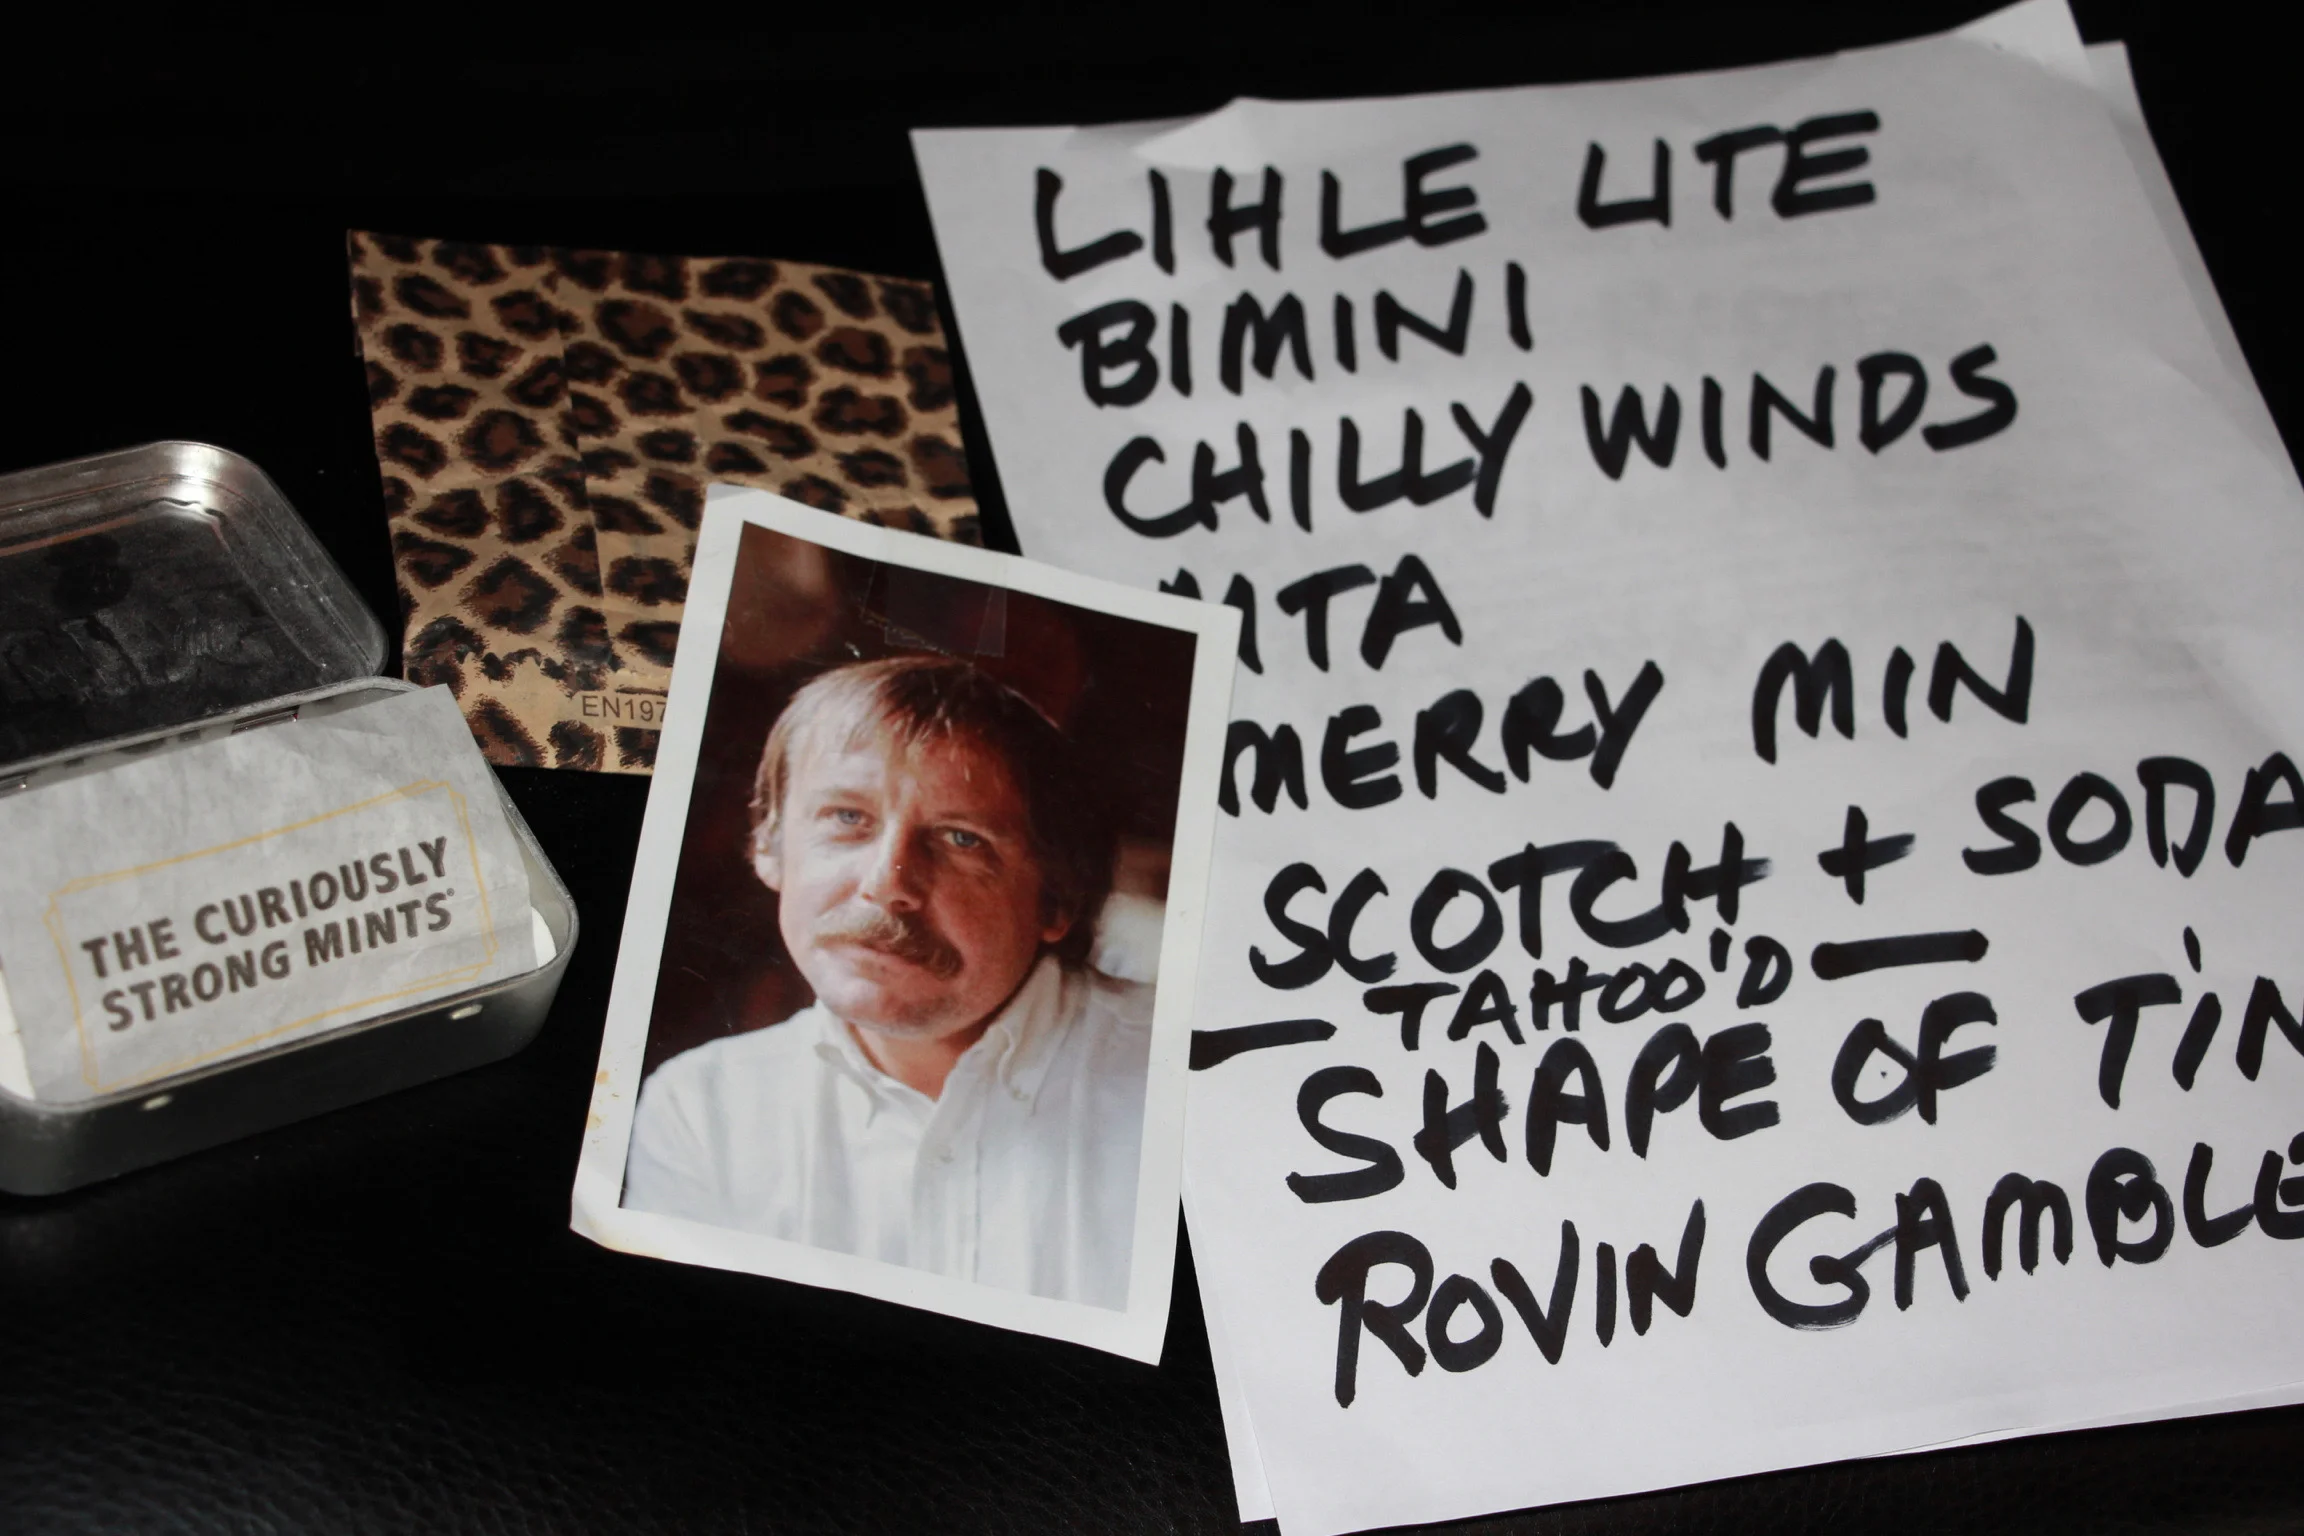 THE CURIOUSLY
STRONG MINTS®
EN197
LIHLE LITE
BIMINI
CHILLY WINDS
MTA
MERRY MIN
SCOTCH + SODA
— TAHOO'D —
SHAPE OF TIN
ROVIN GAMBLE